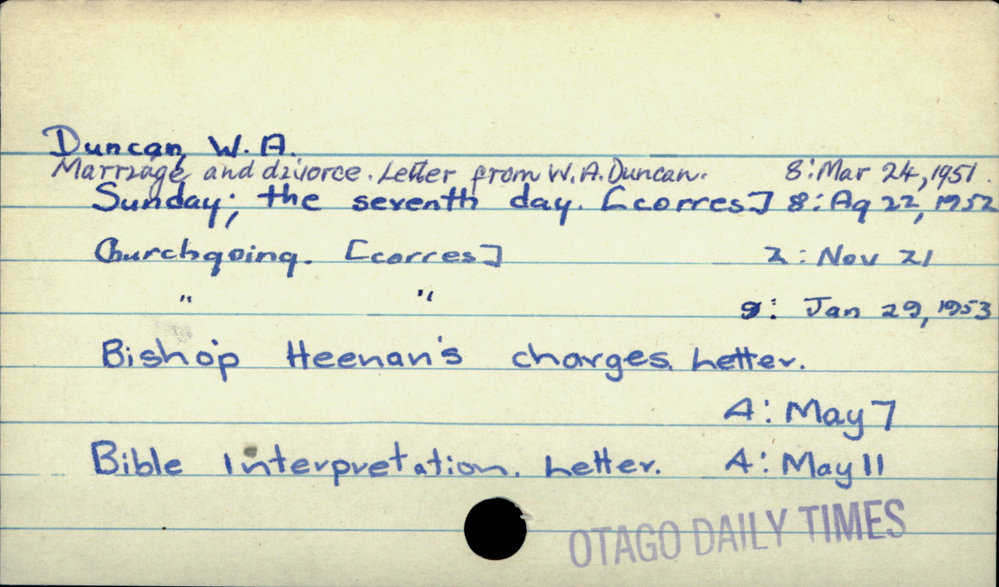 Duncan, W. A.
Marriage and divorce. Letter from W.A. Duncan. 8: Mar 24, 1951.
Sunday; the seventh day. [corres] 8: Ag 22, 1952
Churchgoing. [corres] 2: Nov 21
" " 9: Jan 29, 1953
Bishop Heenan's charges. Letter.
4: May 7
Bible Interpretation. Letter. 4: May 11
OTAGO DAILY TIMES